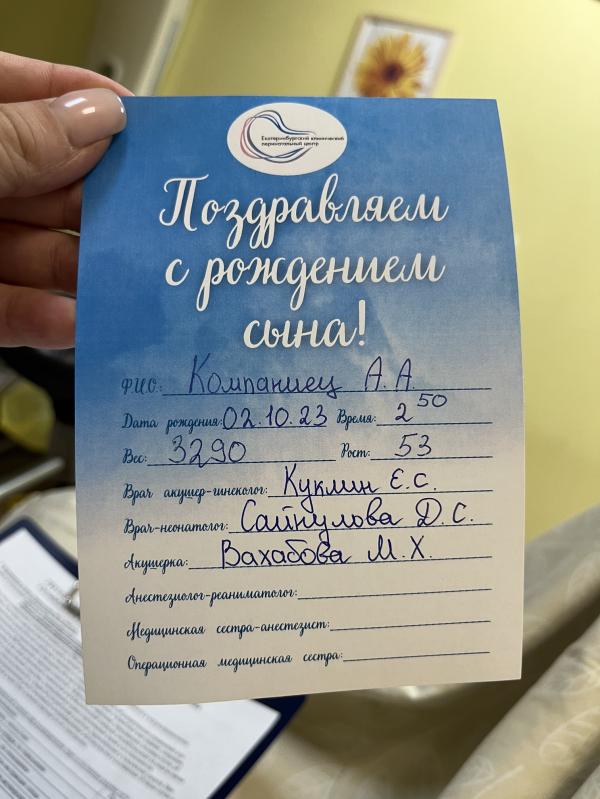 Екатеринбургский клинический
перинатальный центр
Поздравляем
с рождением
сына!
Ф.И.О.: Компаниец А.А.
Дата рождения: 02.10.23 Время: 2 50
Вес: 3290 Рост: 53
Врач акушер-гинеколог: Куклин Е.С.
Врач-неонатолог: Сайнулова Д.С.
Акушерка: Вахабова М.Х.
Анестезиолог-реаниматолог:
Медицинская сестра-анестезист:
Операционная медицинская сестра: